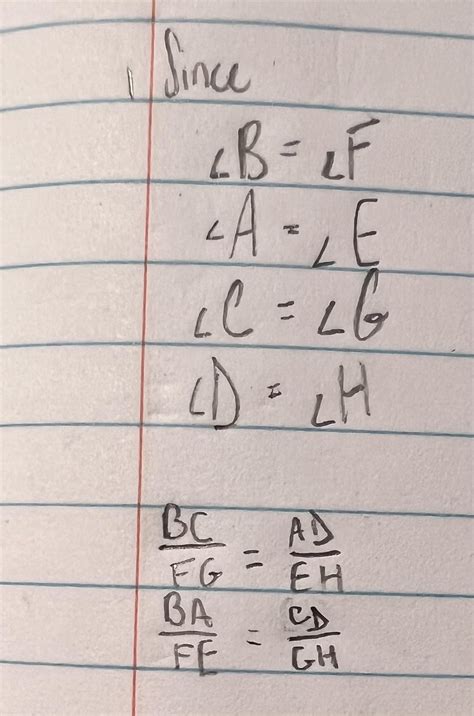 1 Since
∠B = ∠F
∠A = ∠E
∠C = ∠G
∠D = ∠H
BC/FG = AD/EH
BA/FE = CD/GH